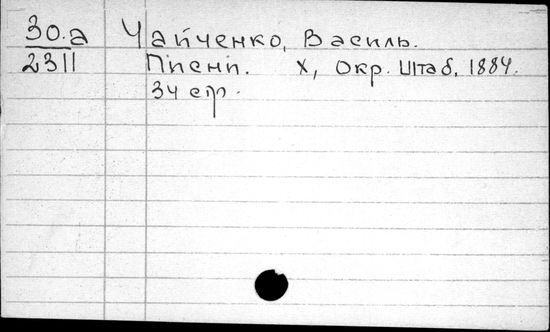 30.а Чайченко, Василь.
2311 Пісні. Х, Окр. Штаб, 1884.
34 стр.